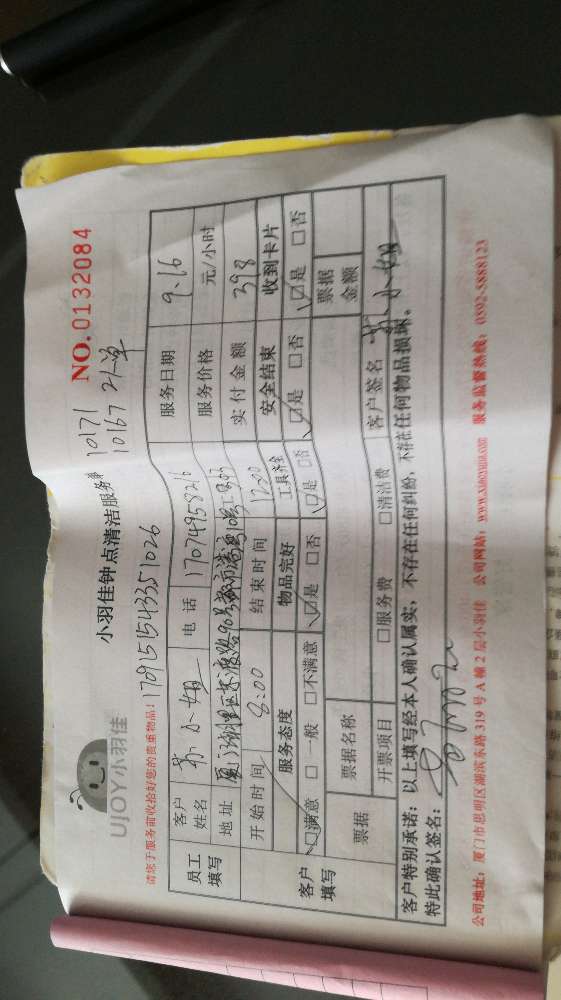 UJOY小羽佳
小羽佳钟点清洁服务单
NO. 0132084
请您于服务前收拾好您的贵重物品!
170915154335 1026
10171
10167
员工填写
客户姓名 苏小姐 电话 17074958216 服务日期 9.16
地址 服务价格 元/小时
开始时间 8:00 结束时间 12:00 实付金额 398
客户填写
服务态度 物品完好 工具齐全 安全结束 收到卡片
☑满意 □一般 □不满意 ☑是 □否 ☑是 □否 ☑是 □否 ☑是 □否
票据 票据名称 票据金额
开票项目 □服务费 □清洁费 客户签名 苏小姐
客户特别承诺:以上填写经本人确认属实,不存在任何纠纷,不存在任何物品损坏。
特此确认签名:
公司地址:厦门市思明区湖滨东路 319 号 A 幢 2 层小羽佳 公司网站:www.xiaoyujia.com 服务监督热线:0592-5888123